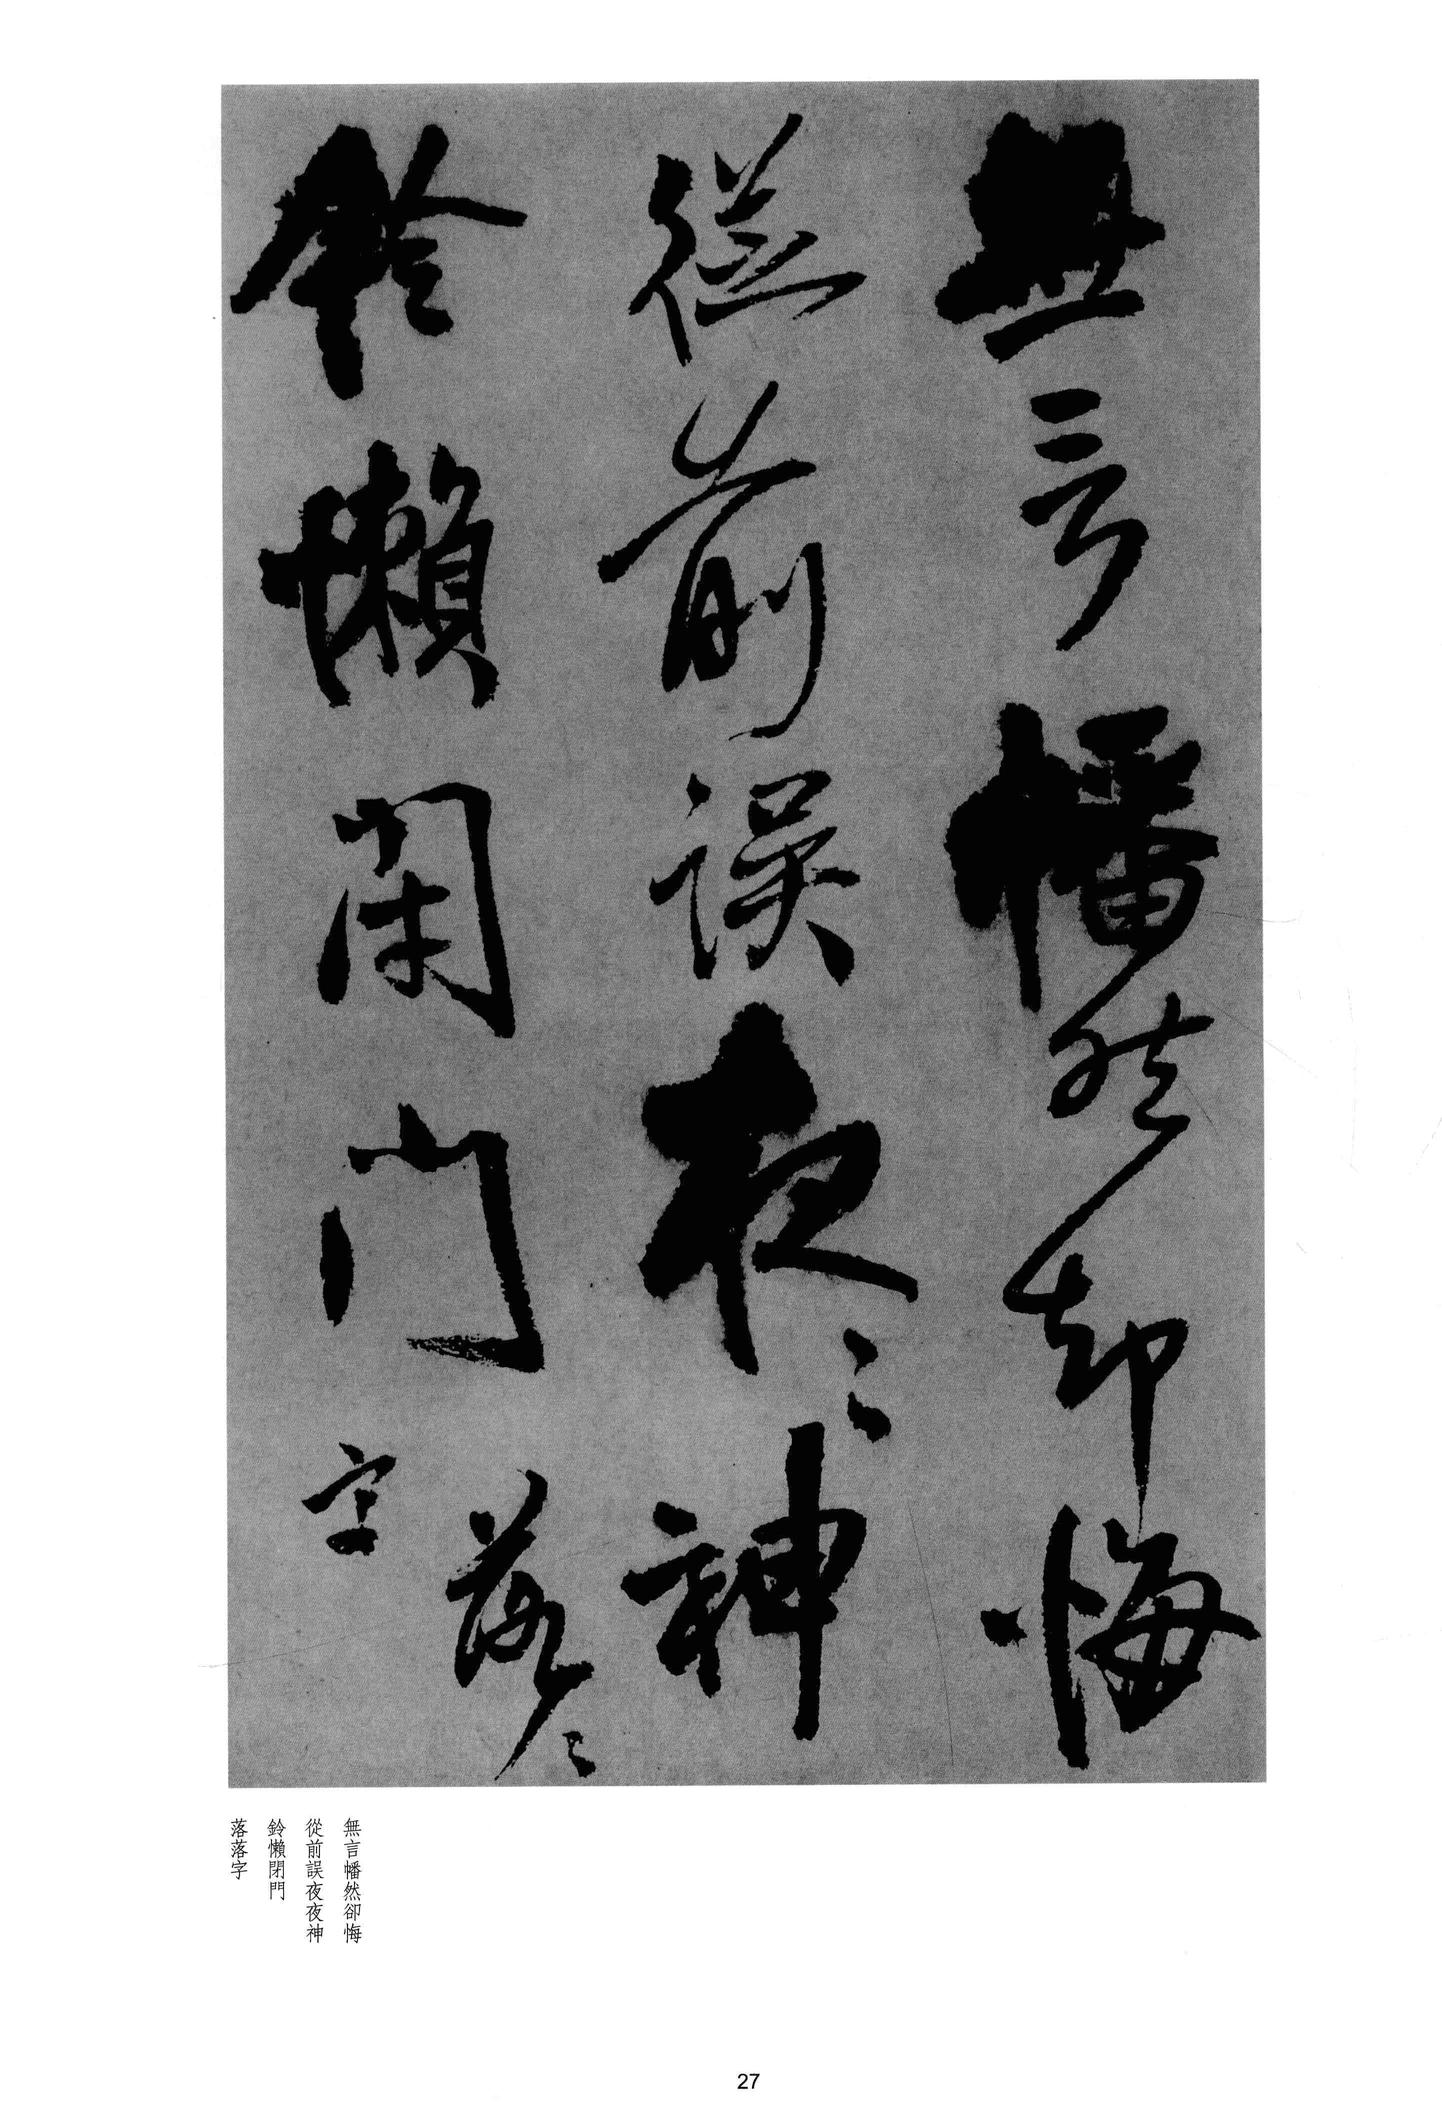 無言幡然卻悔
從前誤夜〻神
鈴懶閉門
落〻字
無言幡然卻悔
從前誤夜夜神
鈴懶閉門
落落字
27